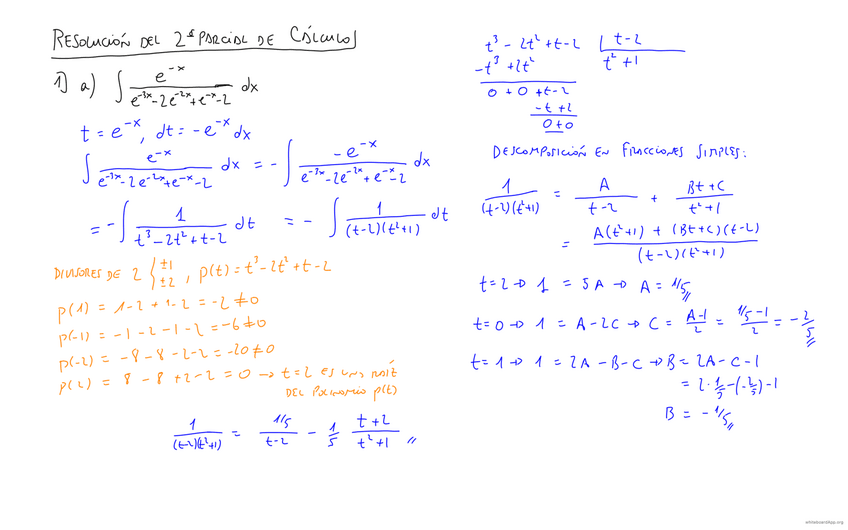 RESOLUCIÓN DEL 2º PARCIAL DE CÁLCULO I
1) a) ∫ e^{-x} / (e^{-3x} - 2e^{-2x} + e^{-x} - 2) dx
t = e^{-x}, dt = -e^{-x} dx
∫ e^{-x} / (e^{-3x} - 2e^{-2x} + e^{-x} - 2) dx = -∫ -e^{-x} / (e^{-3x} - 2e^{-2x} + e^{-x} - 2) dx
= -∫ 1 / (t^3 - 2t^2 + t - 2) dt = -∫ 1 / ((t-2)(t^2+1)) dt
DIVISORES DE 2 { ±1 ±2 , p(t) = t^3 - 2t^2 + t - 2
p(1) = 1 - 2 + 1 - 2 = -2 ≠ 0
p(-1) = -1 - 2 - 1 - 2 = -6 ≠ 0
p(-2) = -8 - 8 - 2 - 2 = -20 ≠ 0
p(2) = 8 - 8 + 2 - 2 = 0 → t = 2 ES UNA RAÍZ
DEL POLINOMIO p(t)
1 / ((t-2)(t^2+1)) = (1/5) / (t-2) - 1/5 (t+2) / (t^2+1) //
t^3 - 2t^2 + t - 2 | t - 2
-t^3 + 2t^2 t^2 + 1
0 + 0 + t - 2
-t + 2
0 + 0
DESCOMPOSICIÓN EN FRACCIONES SIMPLES:
1 / ((t-2)(t^2+1)) = A / (t-2) + (Bt + C) / (t^2+1)
= (A(t^2+1) + (Bt+C)(t-2)) / ((t-2)(t^2+1))
t = 2 → 1 = 5A → A = 1/5 //
t = 0 → 1 = A - 2C → C = (A-1)/2 = (1/5 - 1)/2 = -2/5 //
t = 1 → 1 = 2A - B - C → B = 2A - C - 1
= 2 · 1/5 - (-2/5) - 1
B = -1/5 //
whiteboardapp.org